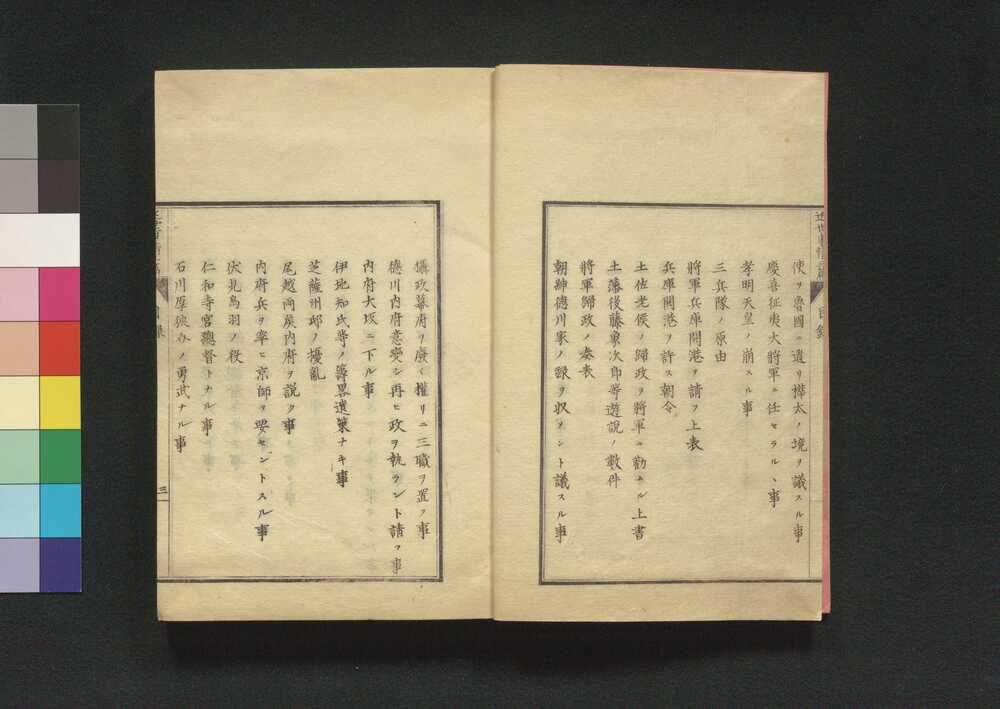 使ヲ魯國ニ遣リ樺太ノ境ヲ議スル事
慶喜征夷大將軍ニ任セラルヽ事
孝明天皇ノ崩スル事
三兵隊ノ原由
將軍兵庫開港ヲ請フ上表
兵庫開港ヲ許ス朝令
土佐老侯ノ歸政ヲ將軍ニ勸ムル上書
土藩後藤象次郎等遊說ノ數件
將軍歸政ノ奏表
朝紳德川家ノ祿ヲ收メント議スル事
攝政幕府ヲ廢シ權リニ三職ヲ置ク事
德川内府意變シ再ヒ政ヲ執ラント請フ事
内府大坂ニ下ル事
伊地知氏等ノ籌畧遺策ナキ事
芝薩州邸ノ擾亂
尾越両矦内府ヲ說ク事
内府兵ヲ率ヒ京師ヲ要セントスル事
伏見鳥羽ノ役
仁和寺宮總督トナル事
石川厚狹介ノ勇武ナル事
目錄
三